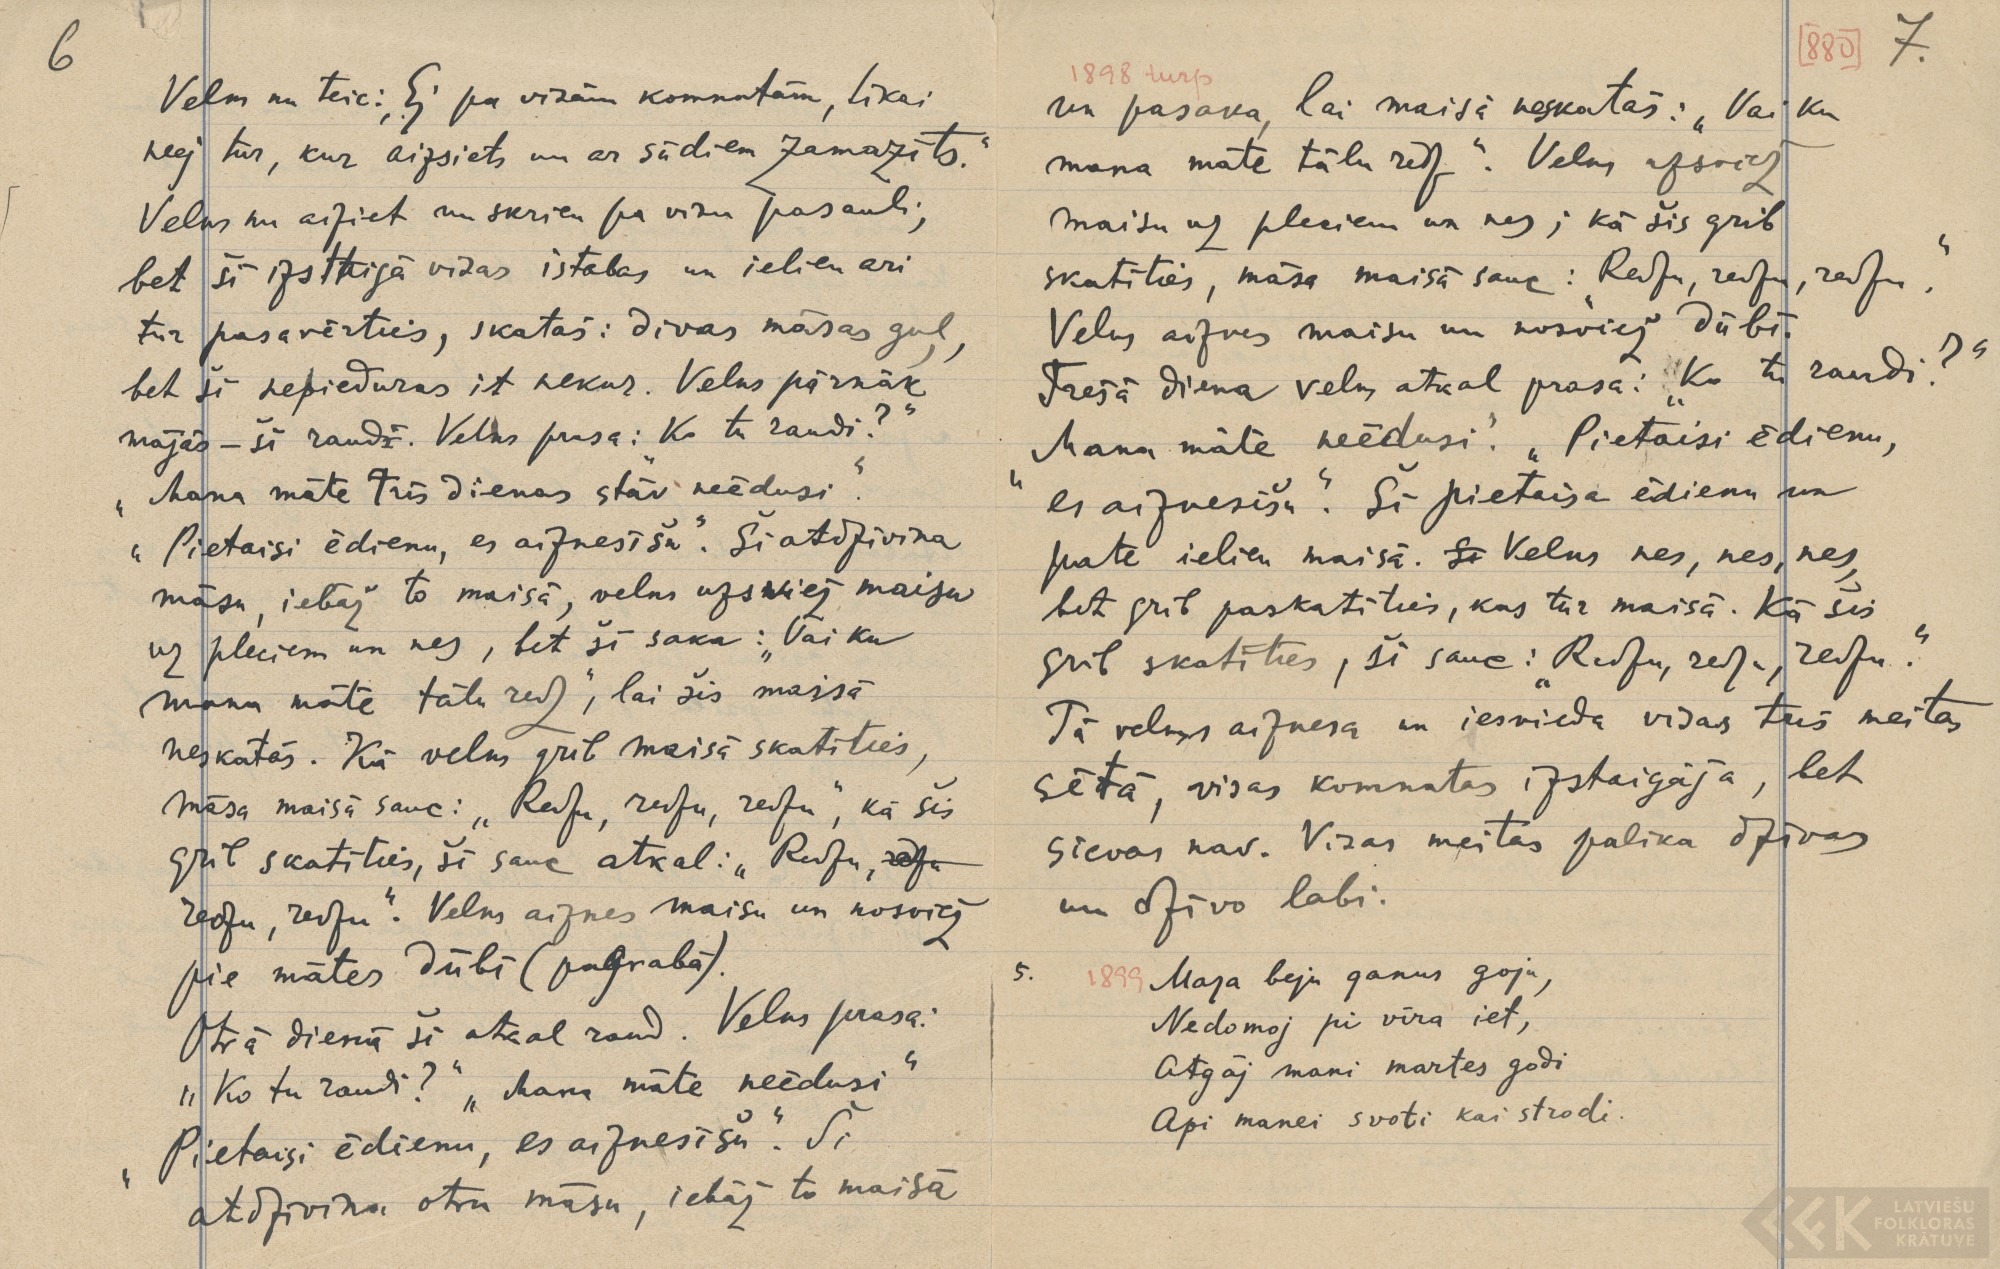 6
Velns nu teic: „Ej pa visām komnatām, tikai
neej tur, kur aizsiets un ar sūdiem zamazīts."
Velns nu aiziet un skrien pa visu pasauli,
bet šī izstaigā visas istabas un ielien arī
tur pasavērties, skatās: divas māsas guļ,
bet šī nepieduras it nekur. Velns pārnāk
mājās – šī raudā. Velns prasa: „Ko tu raudi?"
„Mana māte trīs dienas stāv neēdusi".
„Pietaisi ēdienu, es aiznesīšu". Šī atdzīvina
māsu, iebāž to maisā, velns uzsviež maisu
uz pleciem un nes, bet šī saka: „Vai ku
mana māte tālu redz", lai šis maisā
neskatās. Kā velns grib maisā skatīties,
māsa maisā sauc: „Redzu, redzu, redzu", kā šis
grib skatīties, šī sauc atkal: „Redzu, redzu
redzu, redzu". Velns aiznes maisu un nosviež
pie mātes dūbī (pagrabā).
Otrā dienā šī atkal raud. Velns prasa:
„Ko tu raudi?" „Mana māte neēdusi"
„Pietaisi ēdienu, es aiznesīšu". Šī
atdzīvina otru māsu, iebāž to maisā
[880] 7.
1898 turp
un pasaka, lai maisā neskatās: „Vai ku
mana māte tālu redz". Velns uzsviež
maisu uz pleciem un nes; kā šis grib
skatīties, māsa maisā sauc: „Redzu, redzu, redzu".
Velns aiznes maisu un nosviež dūbī.
Trešā diena velns atkal prasa: „Ko tu raudi?"
„Mana māte neēdusi". „Pietaisi ēdienu,
es aiznesīšu". Šī pietaisa ēdienu un
pate ielien maisā. Šī Velns nes, nes, nes,
bet grib paskatīties, kas tur maisā. Kā šis
grib skatīties, šī sauc: „Redzu, redzu, redzu".
Tā velns aiznesa un iesvieda visas trīs meitas
sētā, visas komnatas izstaigāja, bet
sievas nav. Visas meitas palika dzīvas
un dzīvo labi.
5. 1899 Maza beju ganus goju,
Nedomoj pi vīra iet,
Atgāj mani martes godi
Api manei svoti kai strodi.
LATVIEŠU
FOLKLORAS
KRĀTUVE